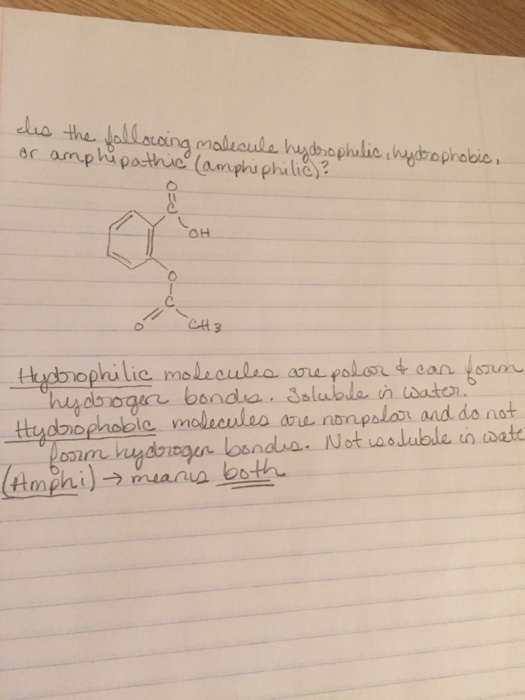 Is the following molecule hydrophilic, hydrophobic,
or amphipathic (amphiphilic)?
O
C
OH
O
C
O
CH3
Hydrophilic molecules are polar & can form
hydrogen bonds. Soluble in water.
Hydrophobic molecules are nonpolar and do not
form hydrogen bonds. Not soluble in wate
(Amphi) → means both